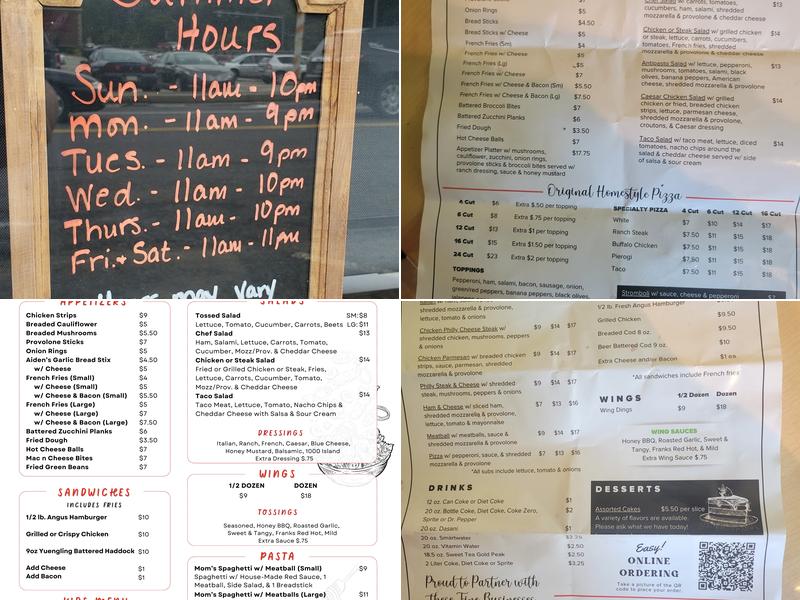 Summer
Hours
Sun. - 11am - 10pm
Mon. - 11am - 9pm
Tues. - 11am - 9pm
Wed. - 11am - 10pm
Thurs. - 11am - 10pm
Fri. + Sat. - 11am - 11pm
may vary
Onion Rings $5
Bread Sticks $4.50
Bread Sticks w/ Cheese $5
French Fries (Sm) $4
French Fries w/ Cheese $5
French Fries (Lg) $5
French Fries w/ Cheese $7
French Fries w/ Cheese & Bacon (Sm) $5.50
French Fries w/ Cheese & Bacon (Lg) $7.50
Battered Broccoli Bites $7
Battered Zucchini Planks $6
Fried Dough $3.50
Hot Cheese Balls $7
Appetizer Platter w/ mushrooms, $17.75
cauliflower, zucchini, onion rings,
provolone sticks & broccoli bites served w/
ranch dressing, sauce & honey mustard
Chef Salad w/ carrots, tomatoes, $13
cucumbers, ham, salami, shredded
mozzarella & provolone & cheddar cheese
Chicken or Steak Salad w/ grilled chicken $14
or steak, lettuce, carrots, cucumbers,
tomatoes, French fries, shredded
mozzarella & provolone & cheddar cheese
Antipasto Salad w/ lettuce, pepperoni, $13
mushrooms, tomatoes, salami, black
olives, banana peppers, American
cheese, shredded mozzarella & provolone
Caesar Chicken Salad w/ grilled $14
chicken or fried, breaded chicken
strips, lettuce, parmesan cheese,
shredded mozzarella & provolone,
croutons, & Caesar dressing
Taco Salad w/ taco meat, lettuce, diced $14
tomatoes, nacho chips around the
salad & cheddar cheese served w/ side
of salsa & sour cream
Original Homestyle Pizza
4 Cut $6 Extra $.50 per topping
6 Cut $8 Extra $.75 per topping
12 Cut $13 Extra $1 per topping
16 Cut $15 Extra $1.50 per topping
24 Cut $23 Extra $2 per topping
TOPPINGS
Pepperoni, ham, salami, bacon, sausage, onion,
green/red peppers, banana peppers, black olives,
SPECIALTY PIZZA 4 Cut 6 Cut 12 Cut 16 Cut
White $7 $10 $14 $17
Ranch Steak $7.50 $11 $15 $18
Buffalo Chicken $7.50 $11 $15 $18
Pierogi $7.50 $11 $15 $18
Taco $7.50 $11 $15 $18
Stromboli w/ sauce, cheese & pepperoni $7
APPETIZERS
Chicken Strips $9
Breaded Cauliflower $5
Breaded Mushrooms $5.50
Provolone Sticks $7
Onion Rings $5
Aiden's Garlic Bread Stix $4.50
w/ Cheese $5
French Fries (Small) $4
w/ Cheese (Small) $5
w/ Cheese & Bacon (Small) $5.50
French Fries (Large) $5
w/ Cheese (Large) $7
w/ Cheese & Bacon (Large) $7.50
Battered Zucchini Planks $6
Fried Dough $3.50
Hot Cheese Balls $7
Mac n Cheese Bites $7
Fried Green Beans $7
SANDWICHES
INCLUDES FRIES
1/2 lb. Angus Hamburger $10
Grilled or Crispy Chicken $10
9oz Yuengling Battered Haddock $10
Add Cheese $1
Add Bacon $1
KIDS MENU
SALADS
Tossed Salad SM:$8
Lettuce, Tomato, Cucumber, Carrots, Beets LG:$11
Chef Salad $13
Ham, Salami, Lettuce, Carrots, Tomato,
Cucumber, Mozz/Prov. & Cheddar Cheese
Chicken or Steak Salad $14
Fried or Grilled Chicken or Steak, Fries,
Lettuce, Carrots, Cucumber, Tomato,
Mozz/Prov. & Cheddar Cheese
Taco Salad $14
Taco Meat, Lettuce, Tomato, Nacho Chips &
Cheddar Cheese with Salsa & Sour Cream
DRESSINGS
Italian, Ranch, French, Caesar, Blue Cheese,
Honey Mustard, Balsamic, 1000 Island
Extra Dressing $.75
WINGS
1/2 DOZEN DOZEN
$9 $18
TOSSINGS
Seasoned, Honey BBQ, Roasted Garlic,
Sweet & Tangy, Franks Red Hot, Mild
Extra Sauce $.75
PASTA
Mom's Spaghetti w/ Meatball (Small) $9
Spaghetti w/ House-Made Red Sauce, 1
Meatball, Side Salad, & 1 Breadstick
Mom's Spaghetti w/ Meatballs (Large) $11
lettuce, tomato & onions
Chicken Philly Cheese Steak w/ $9 $14 $17
shredded chicken, mushrooms, peppers
& onions
Chicken Parmesan w/ breaded chicken $9 $14 $17
strips, sauce, parmesan, shredded
mozzarella & provolone
Philly Steak & Cheese w/ shredded $9 $14 $17
steak, mushrooms, peppers & onions
Ham & Cheese w/ sliced ham, $7 $13 $16
shredded mozzarella & provolone,
lettuce, tomato & mayonnaise
Meatball w/ meatballs, sauce & $9 $14 $17
shredded mozzarella & provolone
Pizza w/ pepperoni, sauce, & shredded $7 $13 $16
mozzarella & provolone
*All subs include lettuce, tomato & onions
DRINKS
12 oz. Can Coke or Diet Coke $1
20 oz. Bottle Coke, Diet Coke, Coke Zero, $2
Sprite or Dr. Pepper
20 oz. Dasani $1
20 oz. Smartwater
20 oz. Vitamin Water $2.50
18.5 oz. Sweet Tea Gold Peak $2.50
2 Liter Coke, Diet Coke or Sprite $3.25
Proud to Partner with
these Fine Businesses
1/2 lb. Fresh Angus Hamburger
Grilled Chicken $9.50
Breaded Cod 8 oz. $9.50
Beer Battered Cod 9 oz. $10
Extra Cheese and/or Bacon $1 ea
*All sandwiches include French fries
WINGS 1/2 Dozen Dozen
Wing Dings $9 $18
WING SAUCES
Honey BBQ, Roasted Garlic, Sweet &
Tangy, Franks Red Hot, & Mild
Extra Wing Sauce $.75
DESSERTS
Assorted Cakes $5.50 per slice
A variety of flavors are available.
Please ask what we have today!
Easy!
ONLINE
ORDERING
Take a picture of the QR
code to place your order.